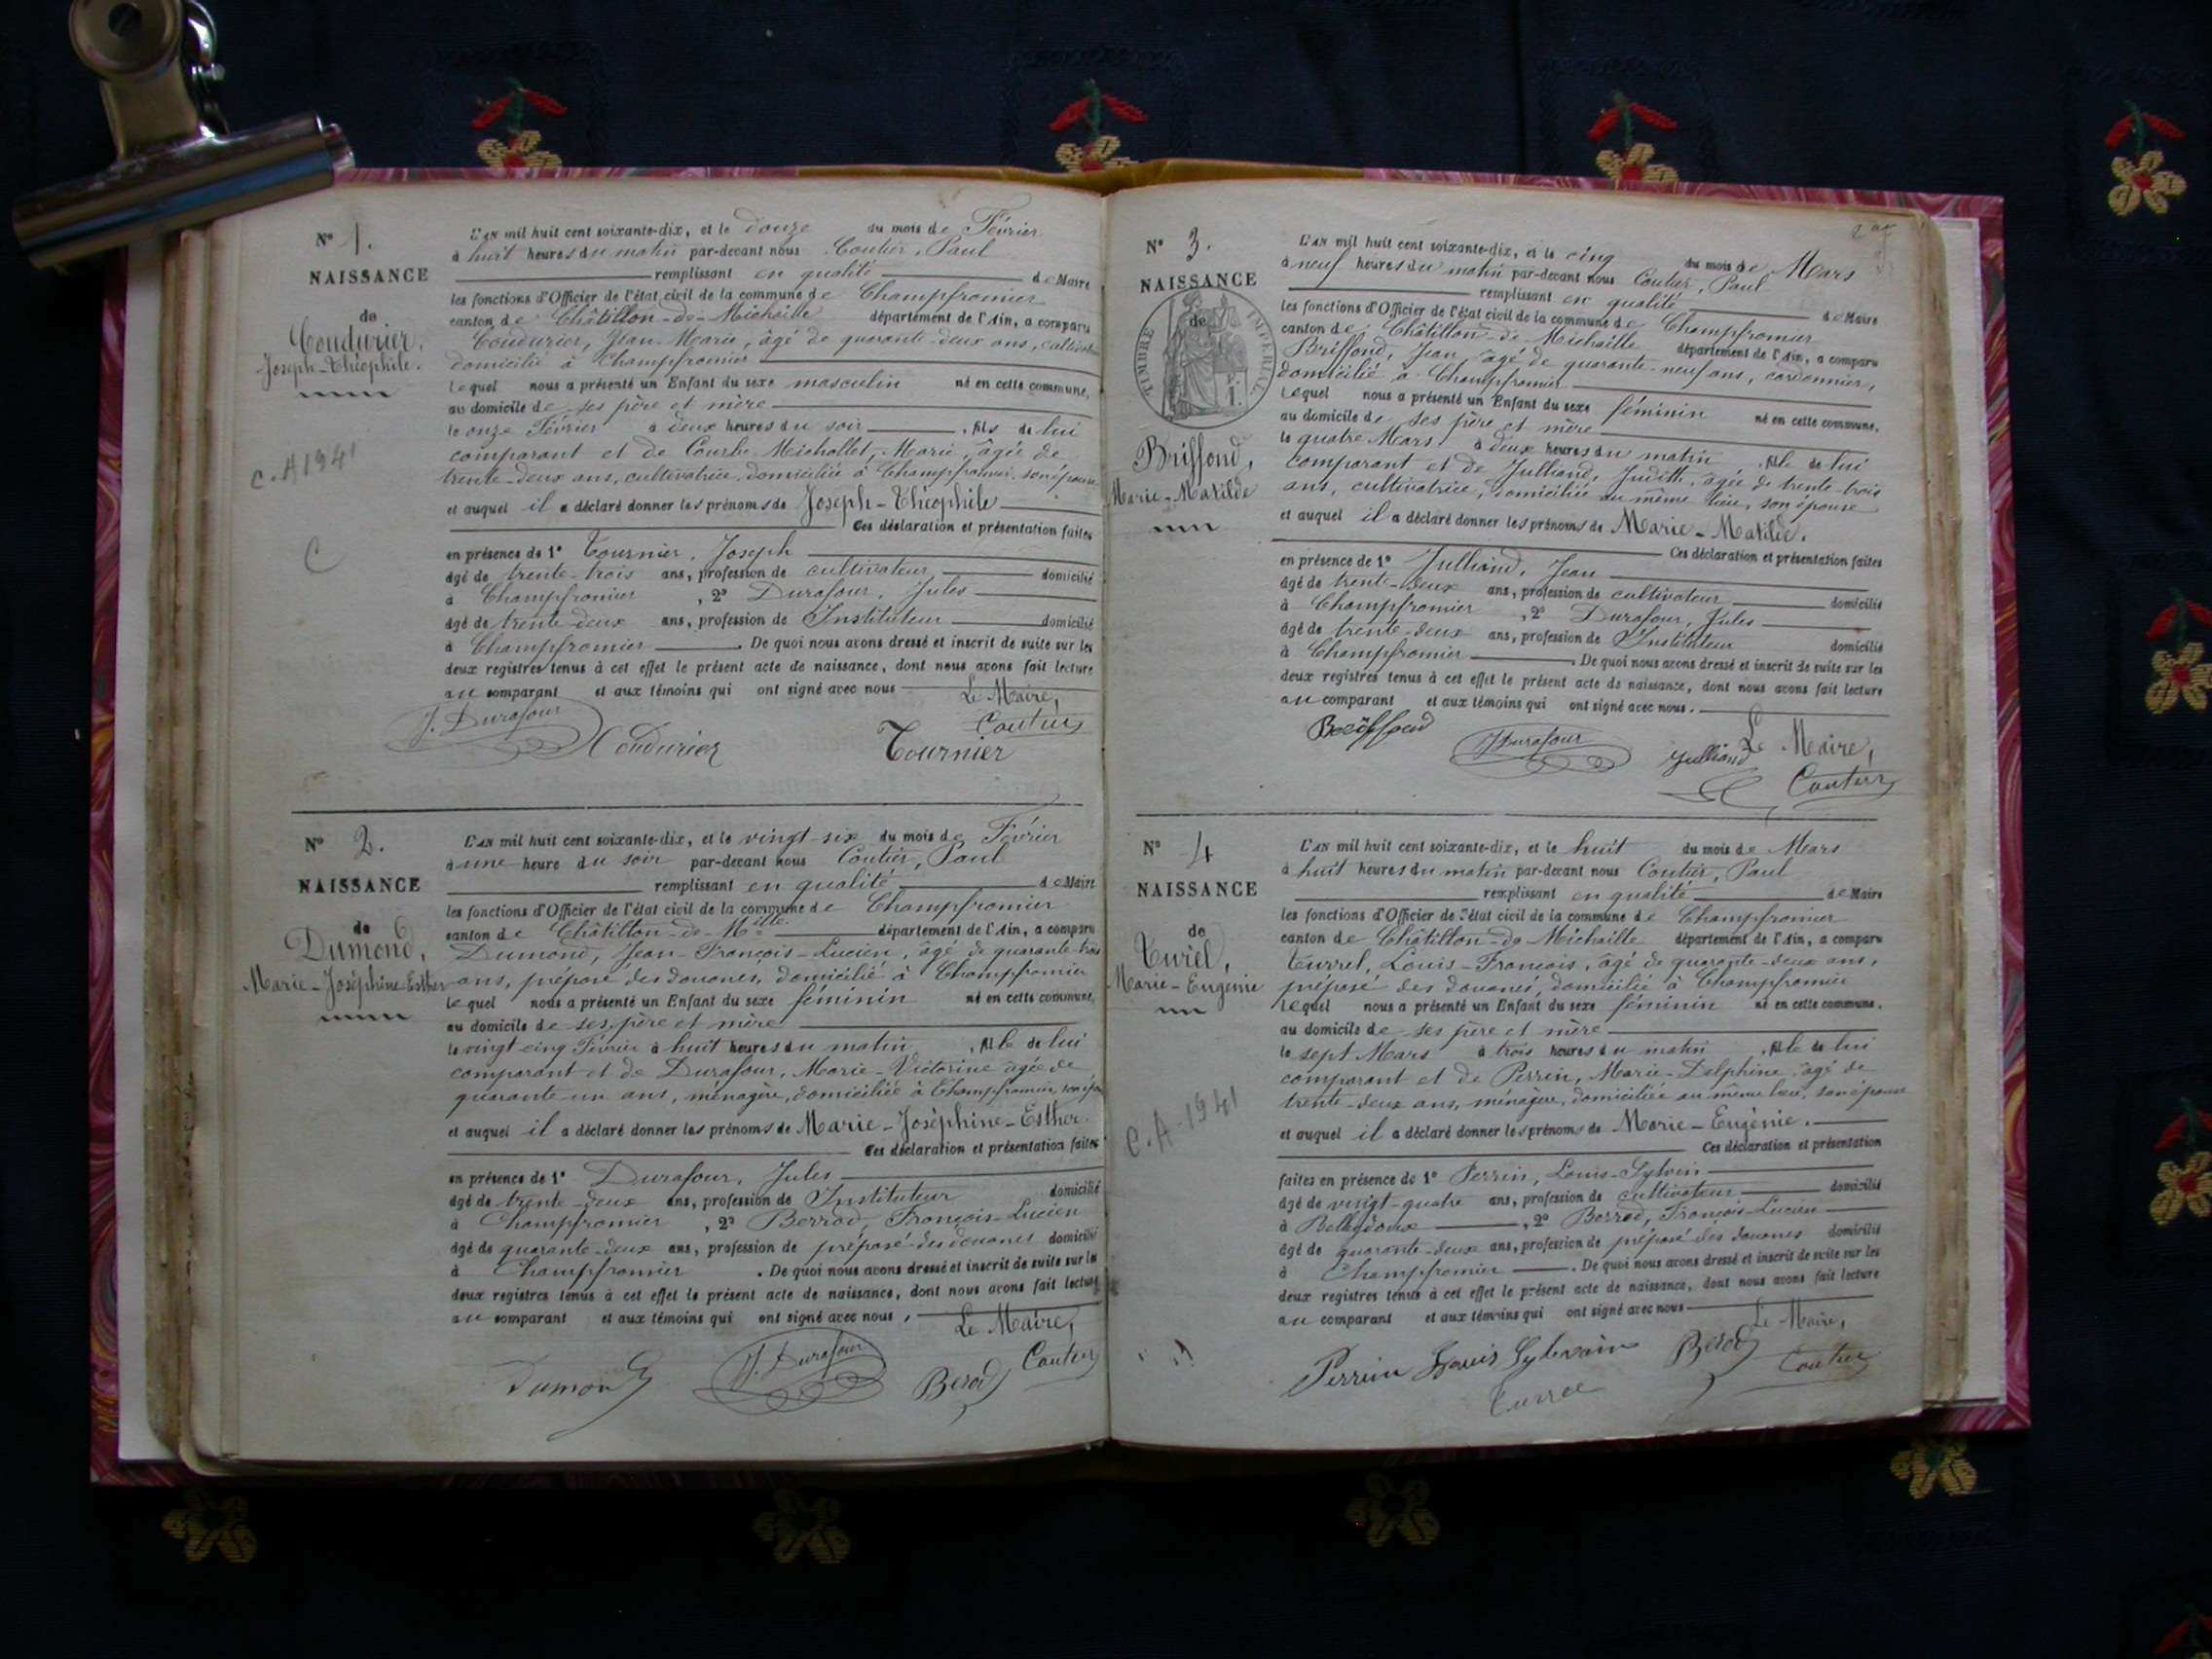 N° 1.
NAISSANCE
de
Coudurier,
Joseph-Théophile.
C.A 1941
C
L'AN mil huit cent soixante-dix, et le douze du mois de Février
à huit heures du matin par-devant nous Coutier, Paul
remplissant en qualité de Maire
les fonctions d'Officier de l'état civil de la commune de Champfromier
canton de Châtillon-de-Michaille département de l'Ain, a comparu
Coudurier, Jean-Marie, âgé de quarante-deux ans,
domicilié à Champfromier
lequel nous a présenté un Enfant du sexe masculin né en cette commune,
au domicile de ses père et mère
le onze Février à deux heures du soir, fils de lui
comparant et de Coutier-Michollet, Marie, âgée de
trente-deux ans, cultivatrice, domiciliée à Champfromier, son épouse
et auquel il a déclaré donner les prénoms de Joseph-Théophile
Ces déclaration et présentation faites
en présence de 1° Tournier, Joseph
âgé de trente-trois ans, profession de cultivateur domicilié
à Champfromier, 2° Durafour, Jules
âgé de trente-deux ans, profession de Instituteur domicilié
à Champfromier. De quoi nous avons dressé et inscrit de suite sur les
deux registres tenus à cet effet le présent acte de naissance, dont nous avons fait lecture
au comparant et aux témoins qui ont signé avec nous
Le Maire,
J. Durafour
Coudurier
Tournier
Coutier
N° 2.
NAISSANCE
de
Dumond,
Marie-Joséphine-Esther
L'AN mil huit cent soixante-dix, et le vingt-six du mois de Février
à une heure du soir par-devant nous Coutier, Paul
remplissant en qualité de Maire
les fonctions d'Officier de l'état civil de la commune de Champfromier
canton de Châtillon-de-Mlle département de l'Ain, a comparu
Dumond, Jean-François-Lucien, âgé de quarante-trois
ans, préposé des douanes, domicilié à Champfromier
lequel nous a présenté un Enfant du sexe féminin né en cette commune,
au domicile de ses père et mère
le vingt-cinq Février à huit heures du matin, fille de lui
comparant et de Durafour, Marie-Victorine âgée de
quarante-un ans, ménagère, domiciliée à Champfromier,
et auquel il a déclaré donner les prénoms de Marie-Joséphine-Esther.
Ces déclaration et présentation faites
en présence de 1° Durafour, Jules
âgé de trente-deux ans, profession de Instituteur domicilié
à Champfromier, 2° Berrod, François-Lucien
âgé de quarante-deux ans, profession de préposé des douanes domicilié
à Champfromier. De quoi nous avons dressé et inscrit de suite sur les
deux registres tenus à cet effet le présent acte de naissance, dont nous avons fait lecture
au comparant et aux témoins qui ont signé avec nous.
Le Maire,
Dumond
J. Durafour
Berod
Coutier
N° 3.
NAISSANCE
de
TIMBRE IMPERIAL
Briffond,
Marie-Matilde
L'AN mil huit cent soixante-dix, et le cinq du mois de Mars
à neuf heures du matin par-devant nous Coutier, Paul
remplissant en qualité de Maire
les fonctions d'Officier de l'état civil de la commune de Champfromier
canton de Châtillon-de-Michaille département de l'Ain, a comparu
Briffond, Jean, âgé de quarante-neuf ans, cordonnier,
domicilié à Champfromier
lequel nous a présenté un Enfant du sexe féminin né en cette commune,
au domicile de ses père et mère
le quatre Mars à deux heures du matin, fille de lui
comparant et de Julliand, Judith, âgée de trente-trois
ans, cultivatrice, domiciliée au même lieu, son épouse
et auquel il a déclaré donner les prénoms de Marie-Matilde.
Ces déclaration et présentation faites
en présence de 1° Julliand, Jean
âgé de trente-deux ans, profession de cultivateur domicilié
à Champfromier, 2° Durafour, Jules
âgé de trente-deux ans, profession de Instituteur domicilié
à Champfromier. De quoi nous avons dressé et inscrit de suite sur les
deux registres tenus à cet effet le présent acte de naissance, dont nous avons fait lecture
au comparant et aux témoins qui ont signé avec nous.
J Durafour
Julliand
Le Maire,
Coutier
N° 4
NAISSANCE
de
Turel,
Marie-Eugénie
C.A-1941
L'AN mil huit cent soixante-dix, et le huit du mois de Mars
à huit heures du matin par-devant nous Coutier, Paul
remplissant en qualité de Maire
les fonctions d'Officier de l'état civil de la commune de Champfromier
canton de Châtillon-de-Michaille département de l'Ain, a comparu
Turrel, Louis-François, âgé de quarante-deux ans,
préposé des douanes, domicilié à Champfromier
lequel nous a présenté un Enfant du sexe féminin né en cette commune,
au domicile de ses père et mère
le sept Mars à trois heures du matin, fille de lui
comparant et de Perrin, Marie-Delphine, âgé de
trente-deux ans, ménagère, domiciliée au même lieu, son épouse
et auquel il a déclaré donner les prénoms de Marie-Eugénie.
Ces déclaration et présentation
faites en présence de 1° Perrin, Louis-Sylvain
âgé de vingt-quatre ans, profession de cultivateur domicilié
à Belleydoux, 2° Berrod, François-Lucien
âgé de quarante-deux ans, profession de préposé des douanes domicilié
à Champfromier. De quoi nous avons dressé et inscrit de suite sur les
deux registres tenus à cet effet le présent acte de naissance, dont nous avons fait lecture
au comparant et aux témoins qui ont signé avec nous
Le Maire,
Perrin Louis Sylvain
Berod
Coutier
Turrel